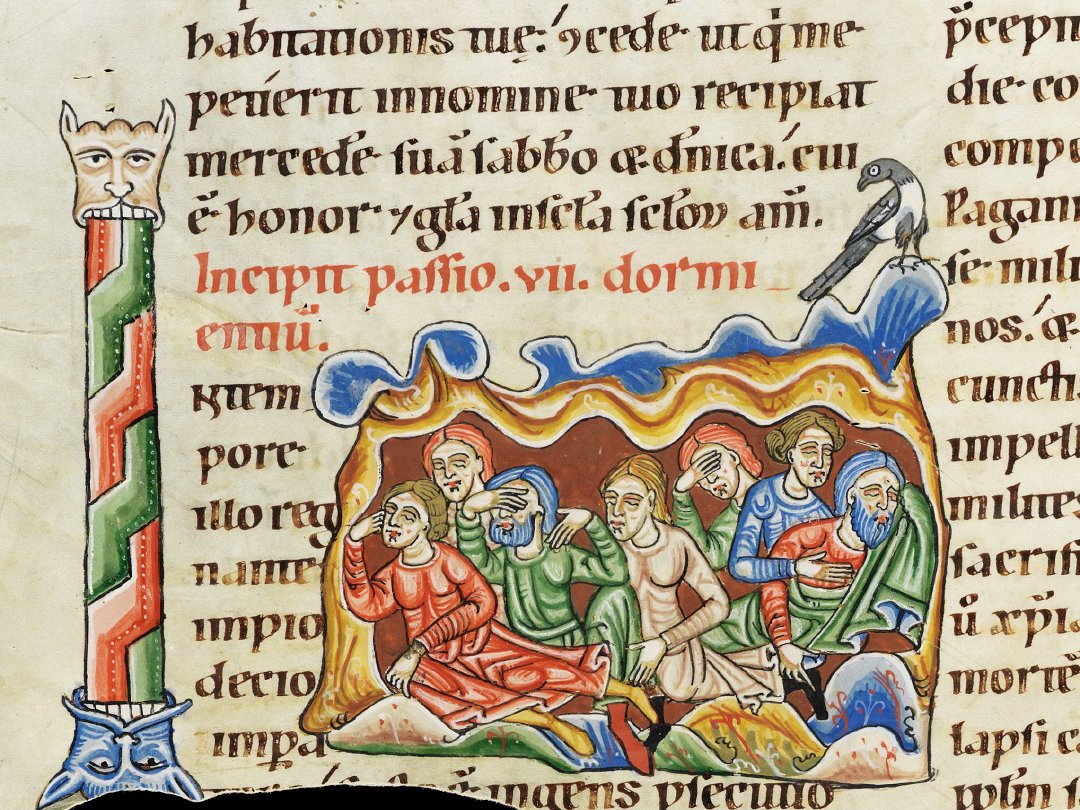 habitationis tuę: ꝯcede ut qi me
petierit innomine tuo recipiat
mercedē suā sabb̄o & dn̄ica. cui
ē honor ⁊ gl̄a inscl̄a scl̄oꝝ am̄.
Incipit passio .vii. dormi
entiū.
Ntem
pore
illo reg
nante
impio
decio
imꝑa
ingens psecutio
die co
Pagani
se mili
nos. &
cuncti
impell
milites
sacrifi
morte
lapsi ca